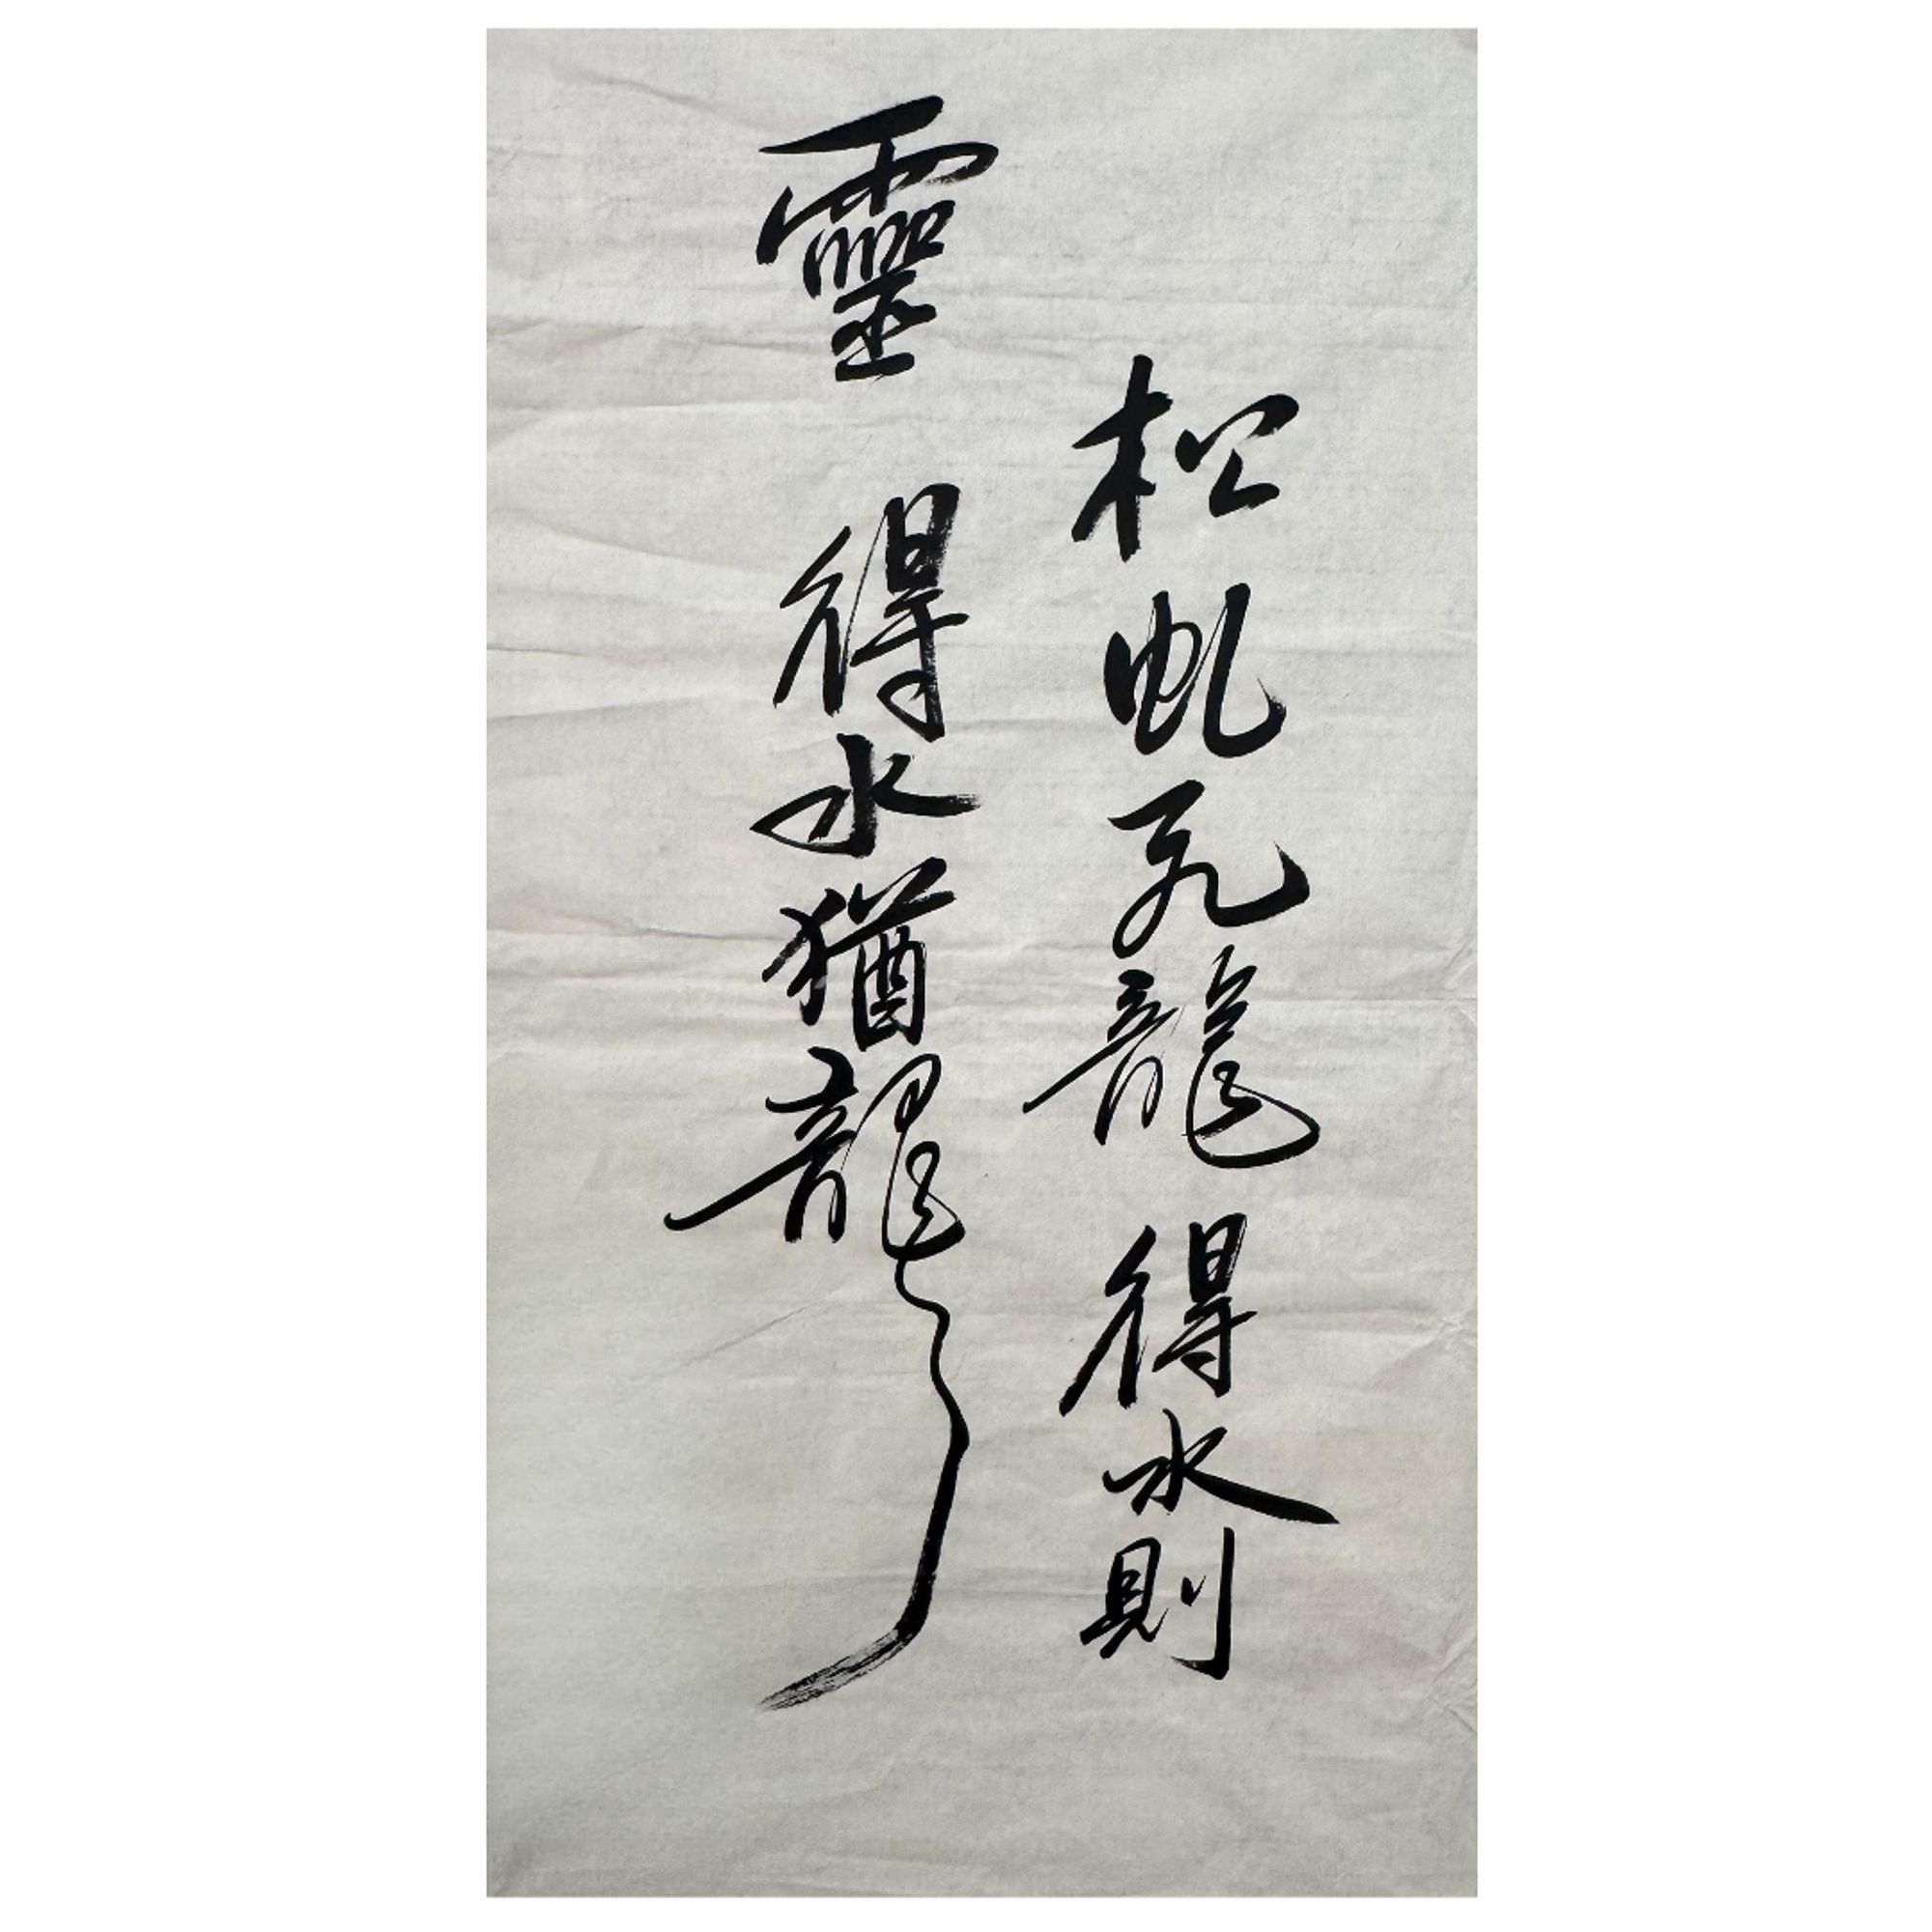 松虬龍得水則
靈得水猶龍